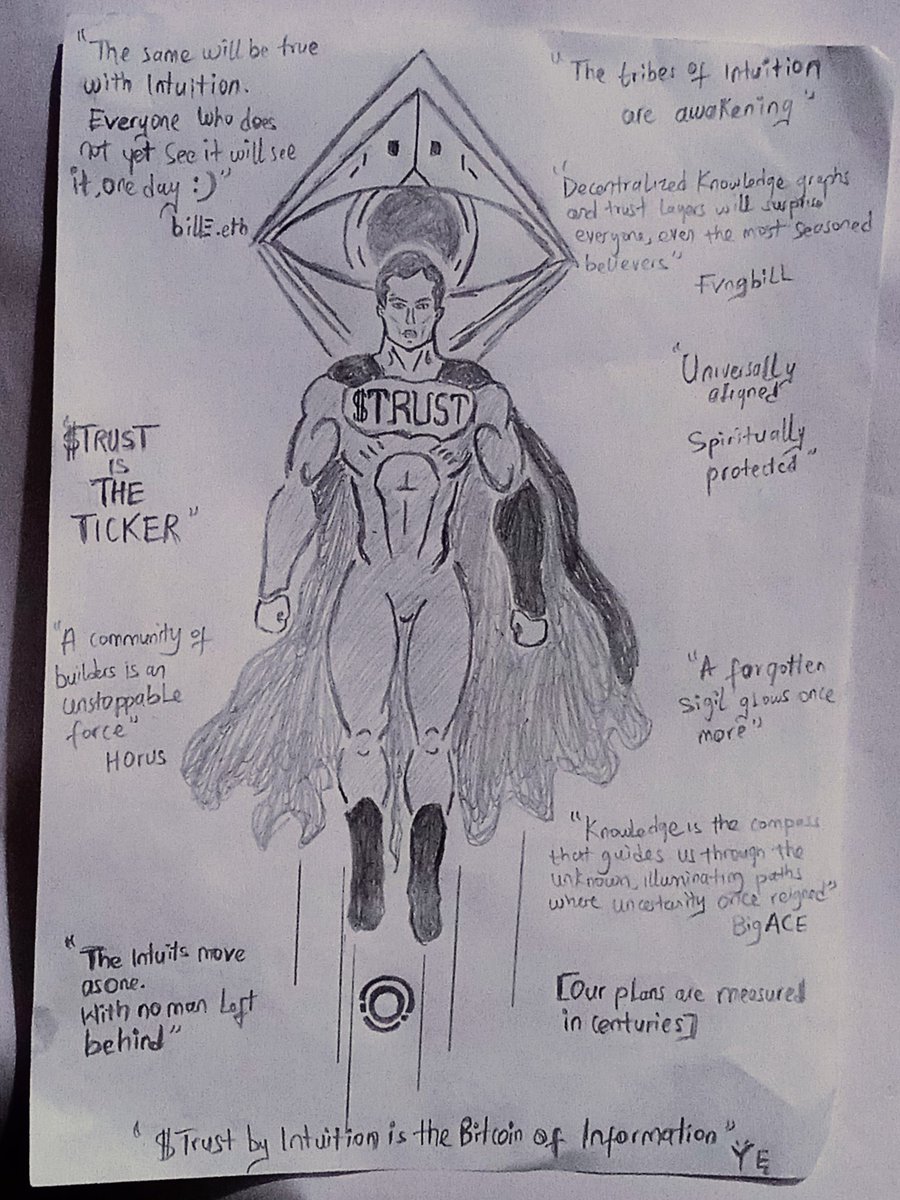 "The same will be true
with Intuition.
Everyone who does
not yet see it will see
it, one day :)"
billΞ.eth
"The tribes of Intuition
are awakening"
"Decentralized Knowledge graphs
and trust layers will surprise
everyone, even the most seasoned
believers"
FvngbiLL
"Universally
aligned
Spiritually
protected"
$TRUST
"$TRUST
IS
THE
TICKER"
"A community of
builders is an
unstoppable
force"
Horus
"A forgotten
sigil glows once
more"
"Knowledge is the compass
that guides us through the
unknown, illuminating paths
where uncertainity once reigned"
BigACE
"The Intuits move
as one.
With no man Left
behind"
[Our plans are measured
in centuries]
"$Trust by Intuition is the Bitcoin of Information"
YE